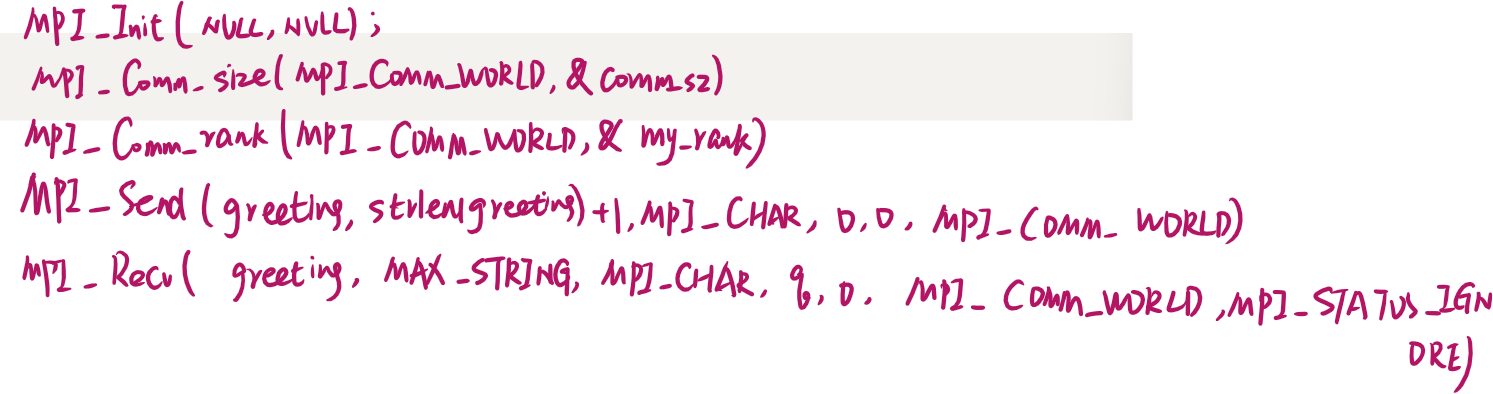 MPI_Init( NULL, NULL);
MPI_Comm_size( MPI_Comm_WORLD, & comm_sz)
MPI_Comm_rank (MPI_COMM_WORLD, & my_rank)
MPI_Send (greeting, strlen(greeting)+1, MPI_CHAR, 0,0, MPI_COMM_WORLD)
MPI_Recv( greeting, MAX_STRING, MPI_CHAR, q, 0, MPI_COMM_WORLD, MPI_STATUS_IGN
ORE)